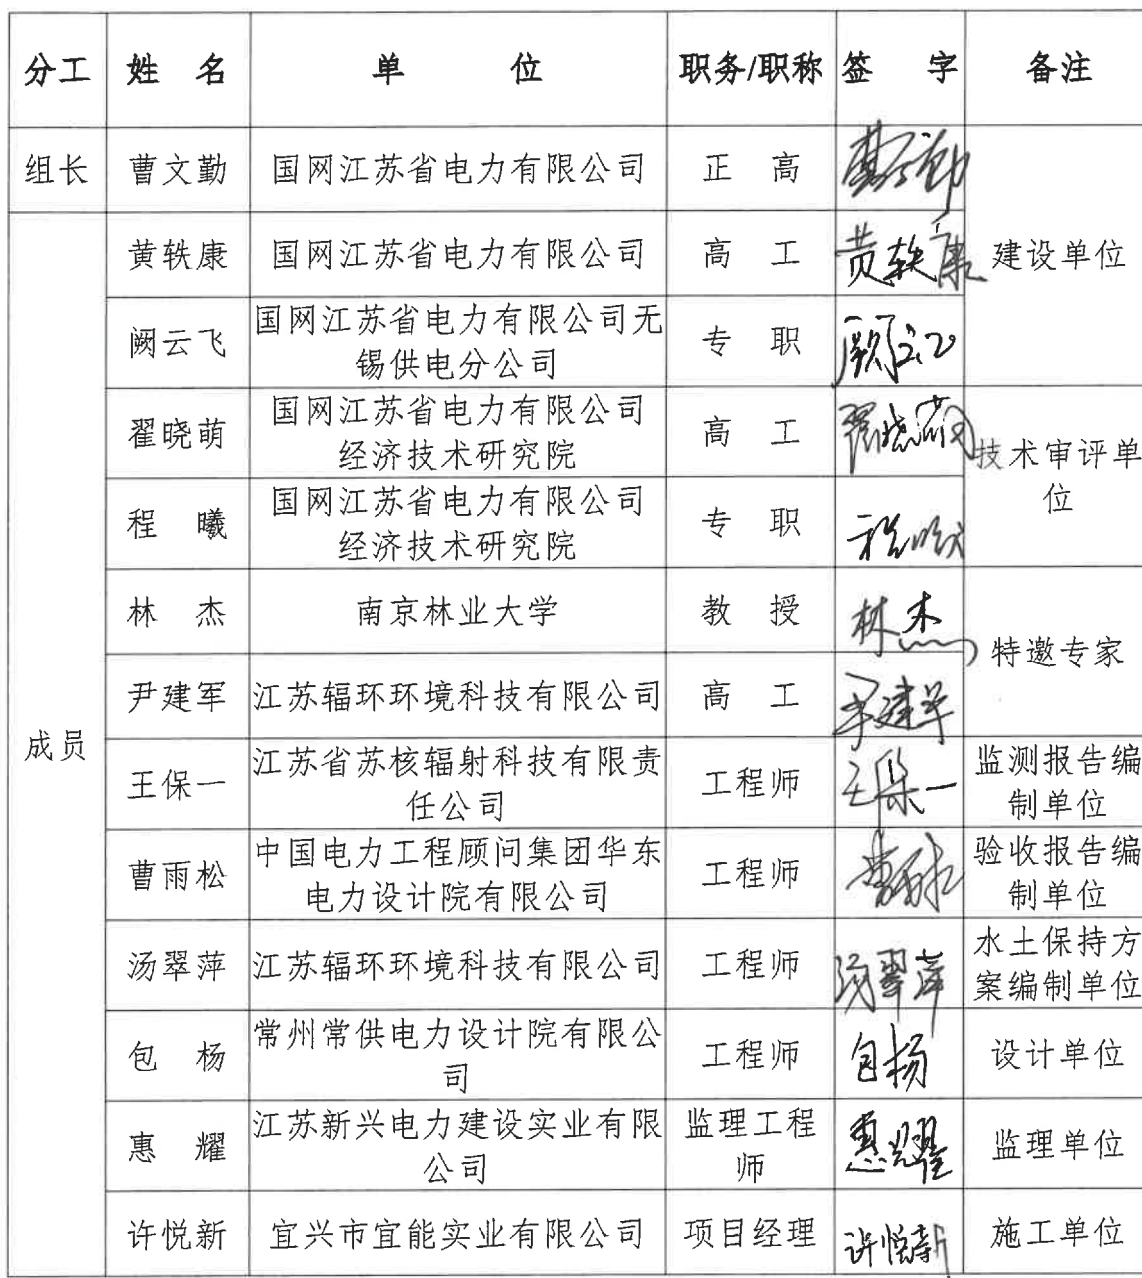 分工 姓 名 单 位 职务/职称 签 字 备注
组长 曹文勤 国网江苏省电力有限公司 正 高 曹文勤
黄轶康 国网江苏省电力有限公司 高 工 黄轶康 建设单位
阙云飞 国网江苏省电力有限公司无
锡供电分公司 专 职 阙云飞
翟晓萌 国网江苏省电力有限公司
经济技术研究院 高 工 翟晓萌 技术审评单
位
程 曦 国网江苏省电力有限公司
经济技术研究院 专 职 程曦
林 杰 南京林业大学 教 授 林杰 特邀专家
尹建军 江苏辐环环境科技有限公司 高 工 尹建军
成员
王保一 江苏省苏核辐射科技有限责
任公司 工程师 王保一 监测报告编
制单位
曹雨松 中国电力工程顾问集团华东
电力设计院有限公司 工程师 曹雨松 验收报告编
制单位
汤翠萍 江苏辐环环境科技有限公司 工程师 汤翠萍 水土保持方
案编制单位
包 杨 常州常供电力设计院有限公
司 工程师 包杨 设计单位
惠 耀 江苏新兴电力建设实业有限
公司 监理工程
师 惠耀 监理单位
许悦新 宜兴市宜能实业有限公司 项目经理 许悦新 施工单位